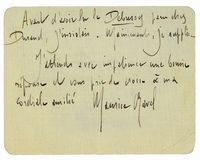 Avant d'avoir lu le Debussy pour chez
Durand, j'insiste. Maintenant, je supplie.
J'attends avec impatience une bonne
réponse et vous prie de croire à ma
cordiale amitié
Maurice Ravel